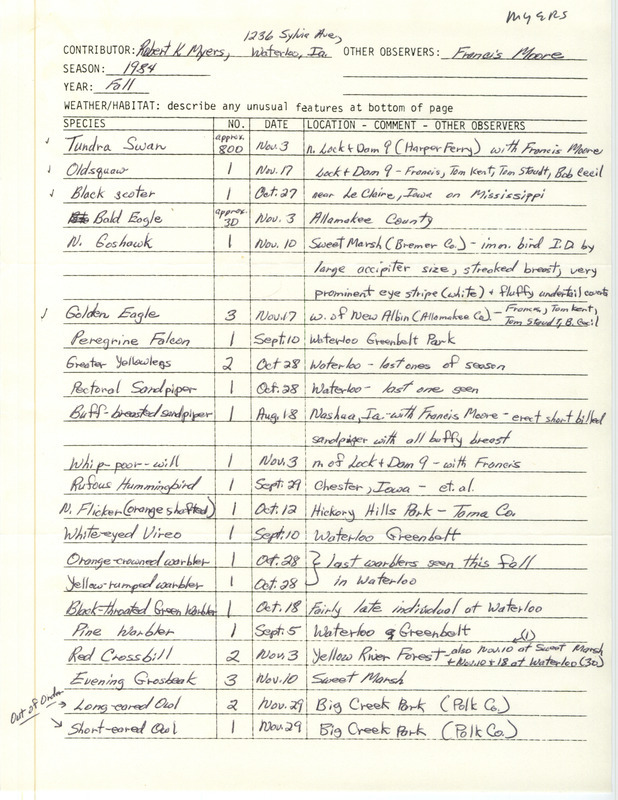 MYERS
1236 Sylvia Ave,
CONTRIBUTOR: Robert K. Myers, Waterloo, Ia. OTHER OBSERVERS: Francis Moore
SEASON: 1984
YEAR: Fall
WEATHER/HABITAT: describe any unusual features at bottom of page
SPECIES NO. DATE LOCATION - COMMENT - OTHER OBSERVERS
✓ Tundra Swan approx. 800 Nov. 3 n. Lock + Dam 9 (Harper Ferry) with Francis Moore
✓ Oldsquaw 1 Nov. 17 Lock + Dam 9 - Francis, Tom Kent, Tom Staudt, Bob Cecil
✓ Black scoter 1 Oct. 27 near Le Claire, Iowa on Mississippi
Bald Eagle approx. 30 Nov. 3 Allamakee County
N. Goshawk 1 Nov. 10 Sweet Marsh (Bremer Co.) - imm. bird I.D. by
large accipiter size, streaked breast, very
prominent eye stripe (white) + fluffy undertail coverts
✓ Golden Eagle 3 Nov. 17 w. of New Albin (Allamakee Co.) - Francis, Tom Kent,
Tom Staudt, B. Cecil
Peregrine Falcon 1 Sept. 10 Waterloo Greenbelt Park
Greater Yellowlegs 2 Oct 28 Waterloo - last ones of season
Pectoral Sandpiper 1 Oct. 28 Waterloo - last one seen
Buff-breasted sandpiper 1 Aug. 18 Nashua, Ia. - with Francis Moore - erect short billed
sandpiper with all buffy breast
Whip-poor-will 1 Nov. 3 n. of Lock + Dam 9 - with Francis
Rufous Hummingbird 1 Sept. 29 Chester, Iowa - et. al.
N. Flicker (orange shafted) 1 Oct. 12 Hickory Hills Park - Tama Co.
White-eyed Vireo 1 Sept. 10 Waterloo Greenbelt
Orange-crowned warbler 1 Oct. 28 } last warblers seen this fall
Yellow-rumped warbler 1 Oct. 28 in Waterloo
Black-throated Green Warbler 1 Oct. 18 Fairly late individual at Waterloo
Pine Warbler 1 Sept. 5 Waterloo Greenbelt
Red Crossbill 2 Nov. 3 Yellow River Forest - also Nov. 10 at Sweet Marsh (1)
+ Nov. 10 + 18 at Waterloo (30)
Evening Grosbeak 3 Nov. 10 Sweet Marsh
Out of Order → Long-eared Owl 2 Nov. 29 Big Creek Park (Polk Co.)
→ Short-eared Owl 1 Nov 29 Big Creek Park (Polk Co.)